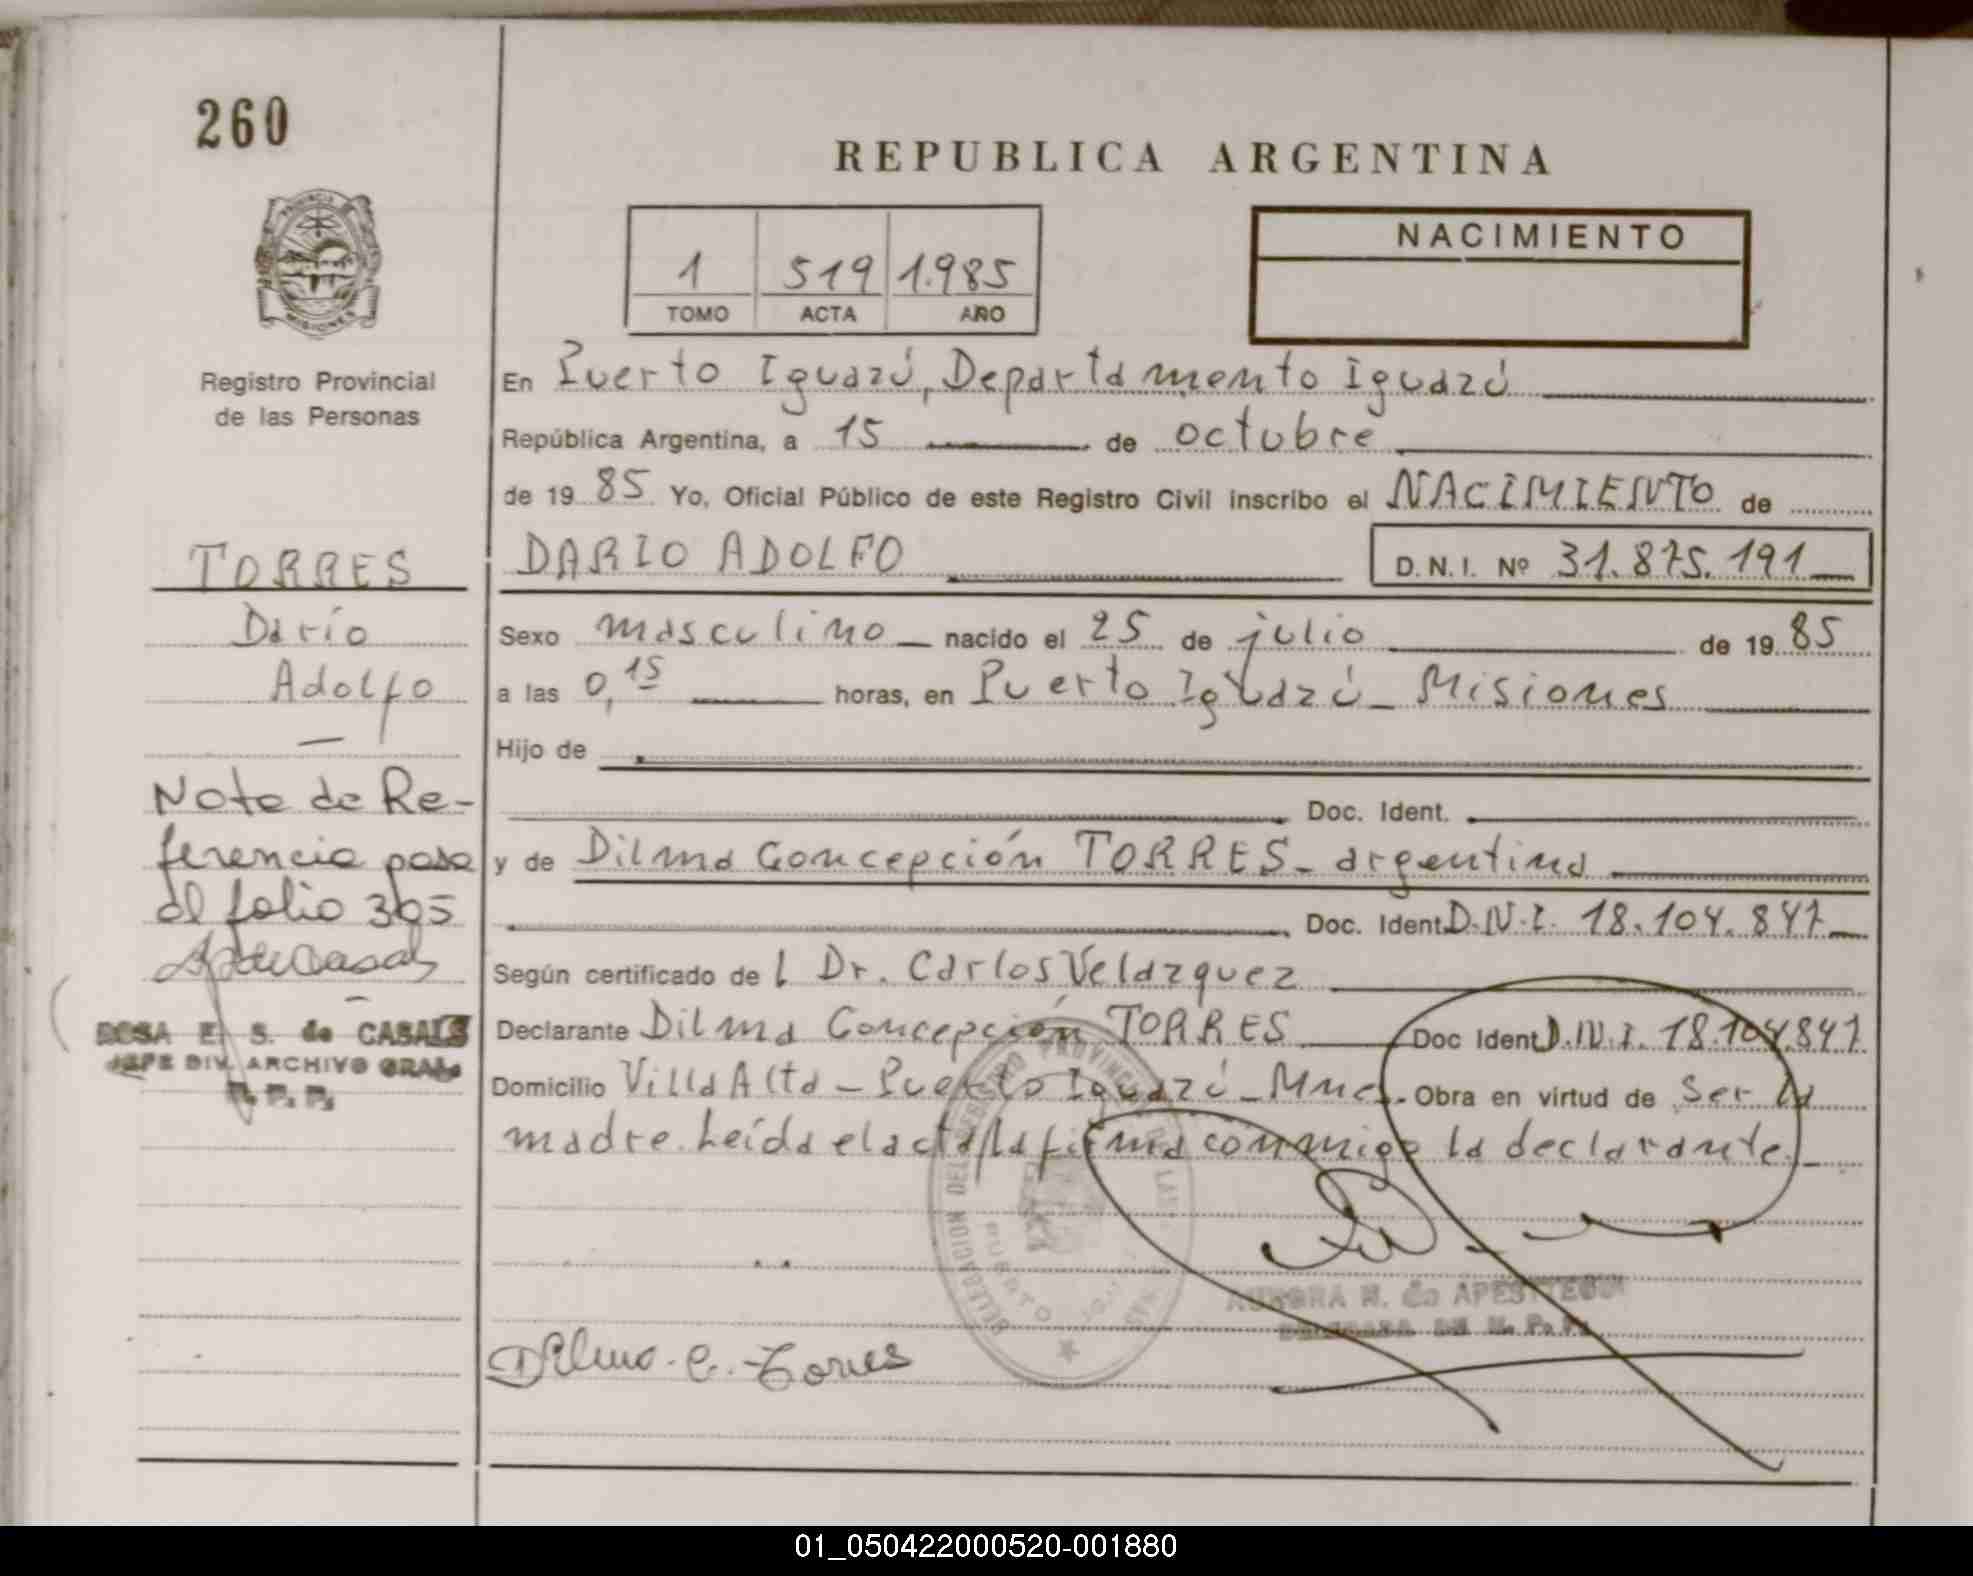 260
REPUBLICA ARGENTINA
NACIMIENTO
1 519 1.985
TOMO ACTA AÑO
PROVINCIA DE
MISIONES
Registro Provincial
de las Personas
En Puerto Iguazú, Departamento Iguazú
República Argentina, a 15 de octubre
de 19 85 Yo, Oficial Público de este Registro Civil inscribo el NACIMIENTO de
TORRES
Darío
Adolfo
DARIO ADOLFO D.N.I. Nº 31.875.191
Sexo masculino nacido el 25 de julio de 19 85
a las 0,15 horas, en Puerto Iguazú - Misiones
Hijo de
Doc. Ident.
y de Dilma Concepción TORRES - argentina
Doc. Ident. D.N.I. 18.104.847
Según certificado de l Dr. Carlos Velazquez
Declarante Dilma Concepción TORRES Doc Ident D.N.I. 18.104.847
Domicilio Villa Alta - Puerto Iguazú - Mnes. Obra en virtud de Ser la
madre. Leída el acta, la firma conmigo la declarante.
Nota de Re-
ferencia pasa
al folio 395
ROSA E. S. de CASALS
JEFE DIV. ARCHIVO GRAL.
R. P. P.
DELEGACION DEL REGISTRO PROVINCIAL DE LAS
PUERTO
AURORA N. de APESTEGUI
DELEGADA DE R. P. P.
Dilma. C. Torres
01_050422000520-001880